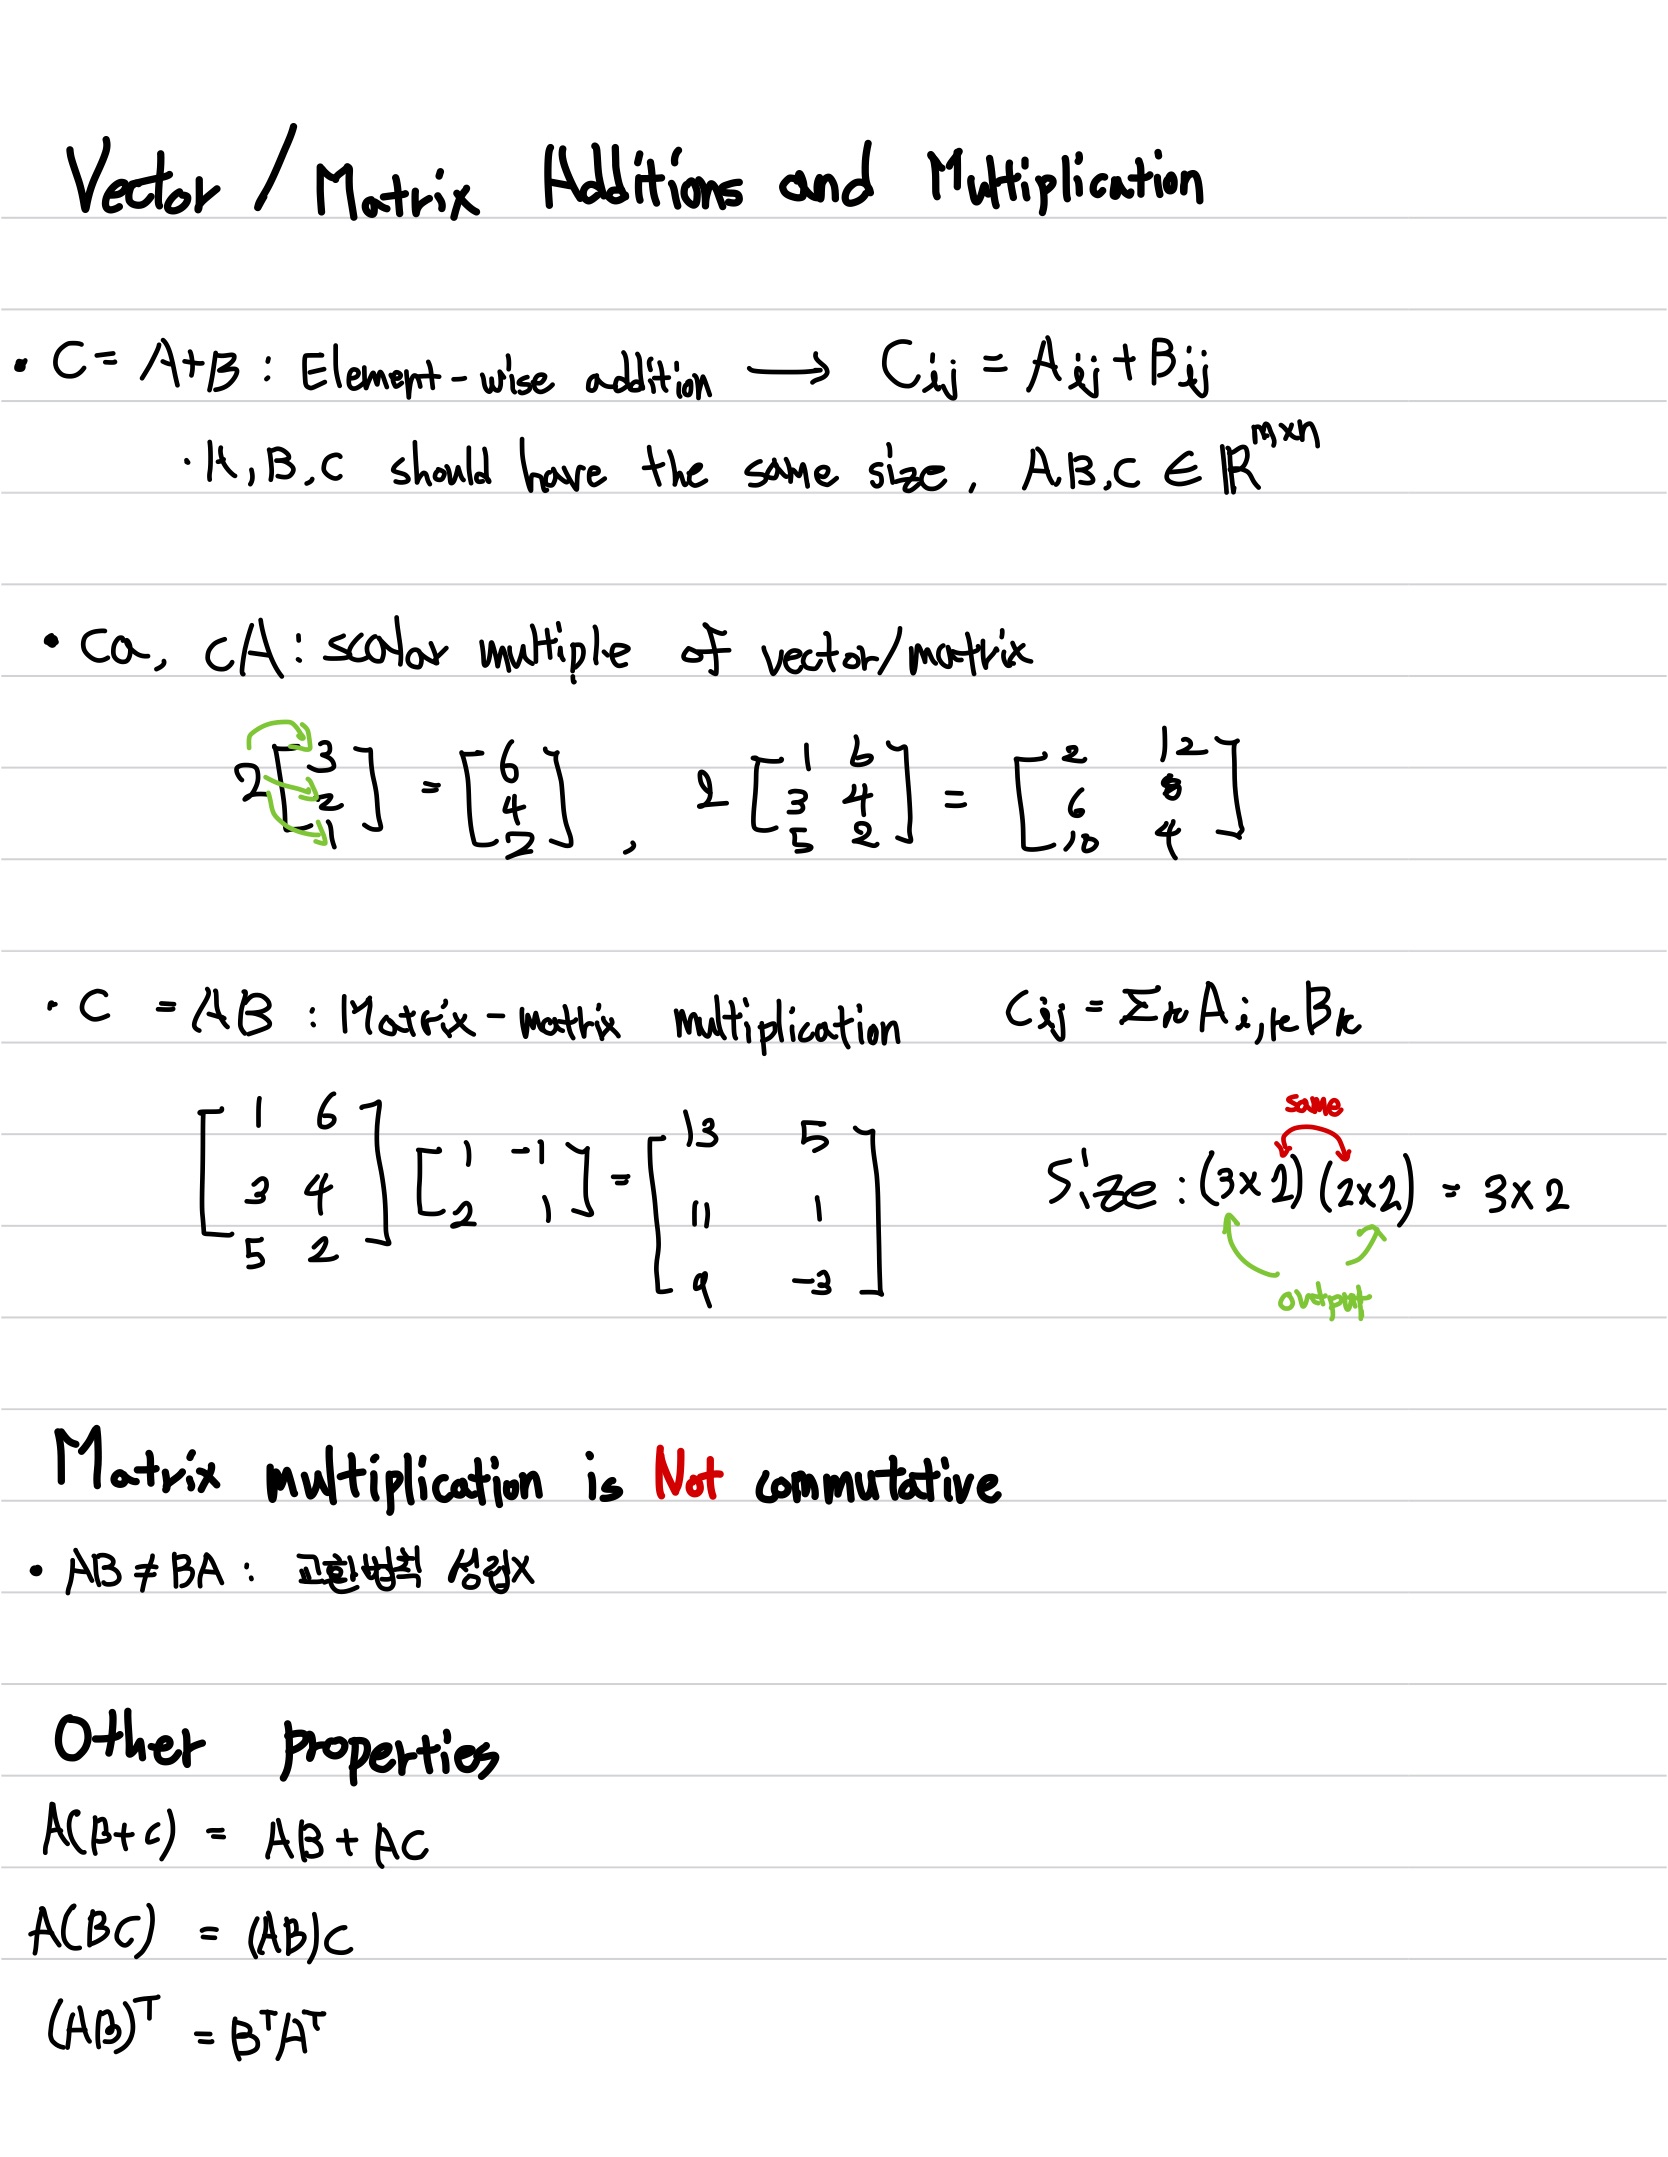 Vector / Matrix Additions and Multiplication
• C = A+B : Element-wise addition → Cij = Aij + Bij
· A, B, C should have the same size, A, B, C ∈ ℝ^m×n
• ca, cA : scalar multiple of vector/matrix
2 [3 2 1] = [6 4 2] , 2 [1 6; 3 4; 5 2] = [2 12; 6 8; 10 4]
· C = AB : Matrix-matrix multiplication Cij = Σk Ai,k Bk
same
[1 6; 3 4; 5 2] [1 -1; 2 1] = [13 5; 11 1; 9 -3] Size : (3×2) (2×2) = 3×2
output
Matrix multiplication is Not commutative
• AB ≠ BA : 교환법칙 성립X
Other properties
A(B+C) = AB + AC
A(BC) = (AB)C
(AB)^T = B^T A^T